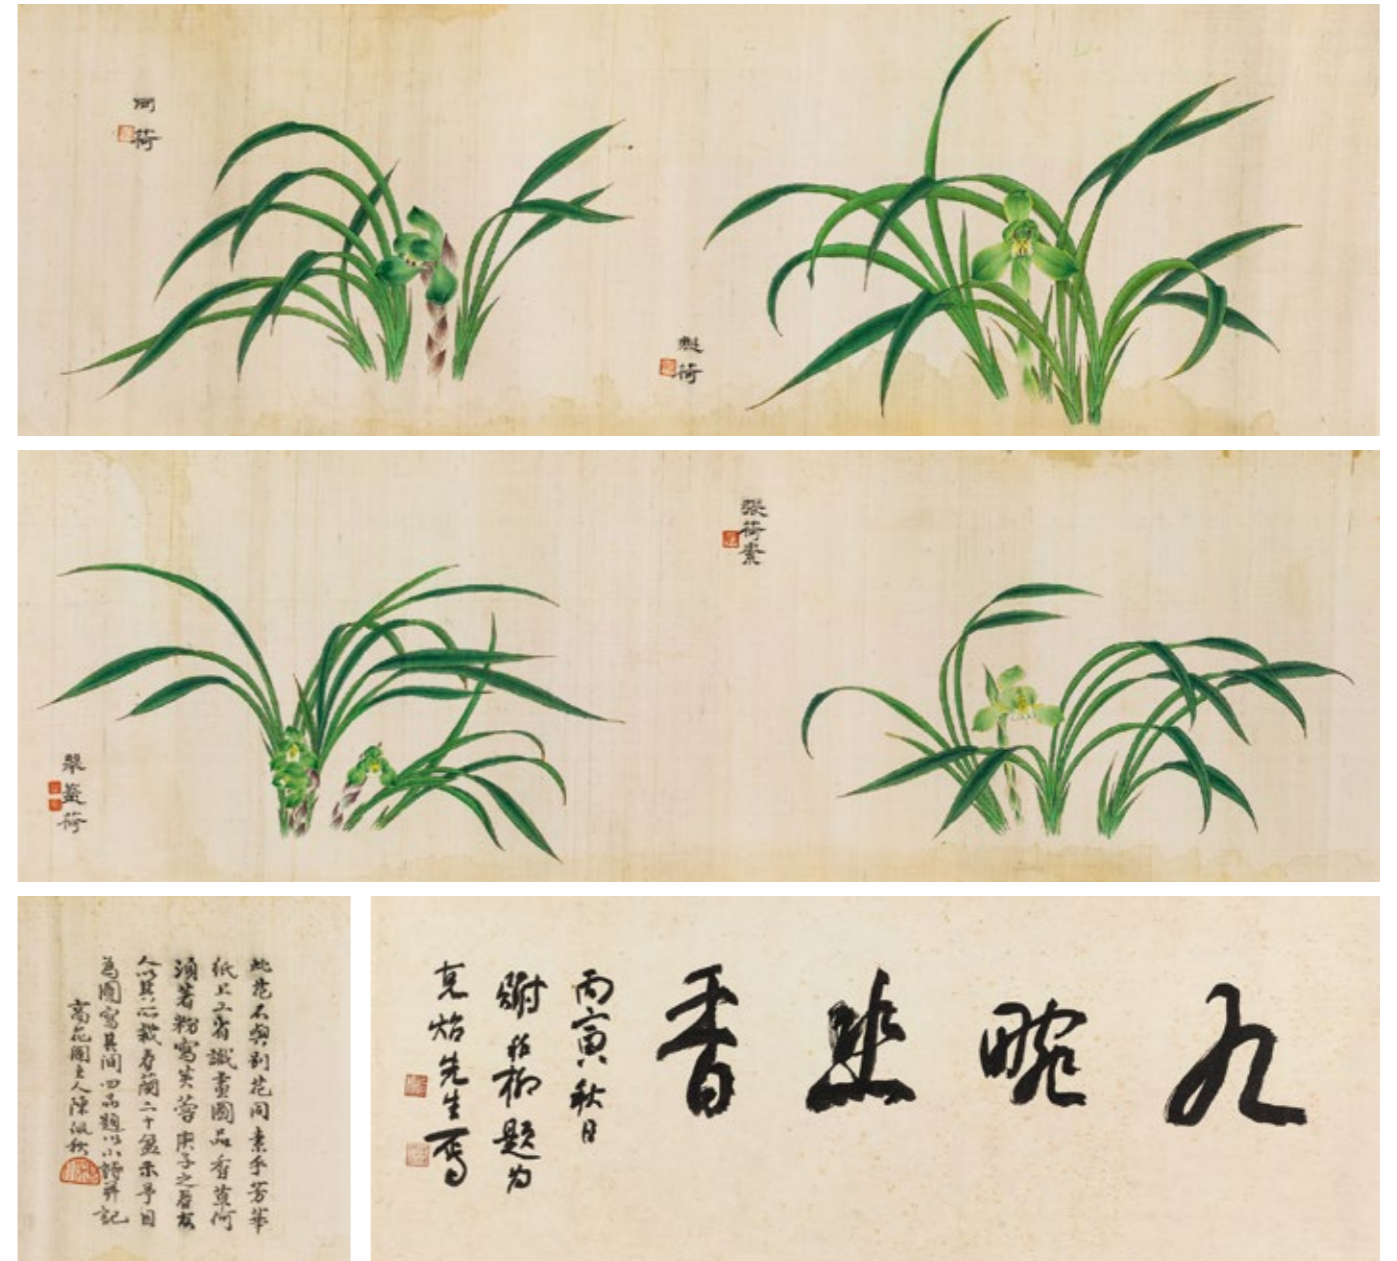 同荷
荷
張荷素
翠蓋荷
九畹幽香
丙寅秋日
謝稚柳題為
先生
此花不與別花同素手芳華
紙上工省識畫圖品香草何
須著粉寫芙蓉庚子之春友
人以其所栽春蘭二十盆示予因
為圖寫其間四品題以小詩并記
高花閣主人陳佩秋